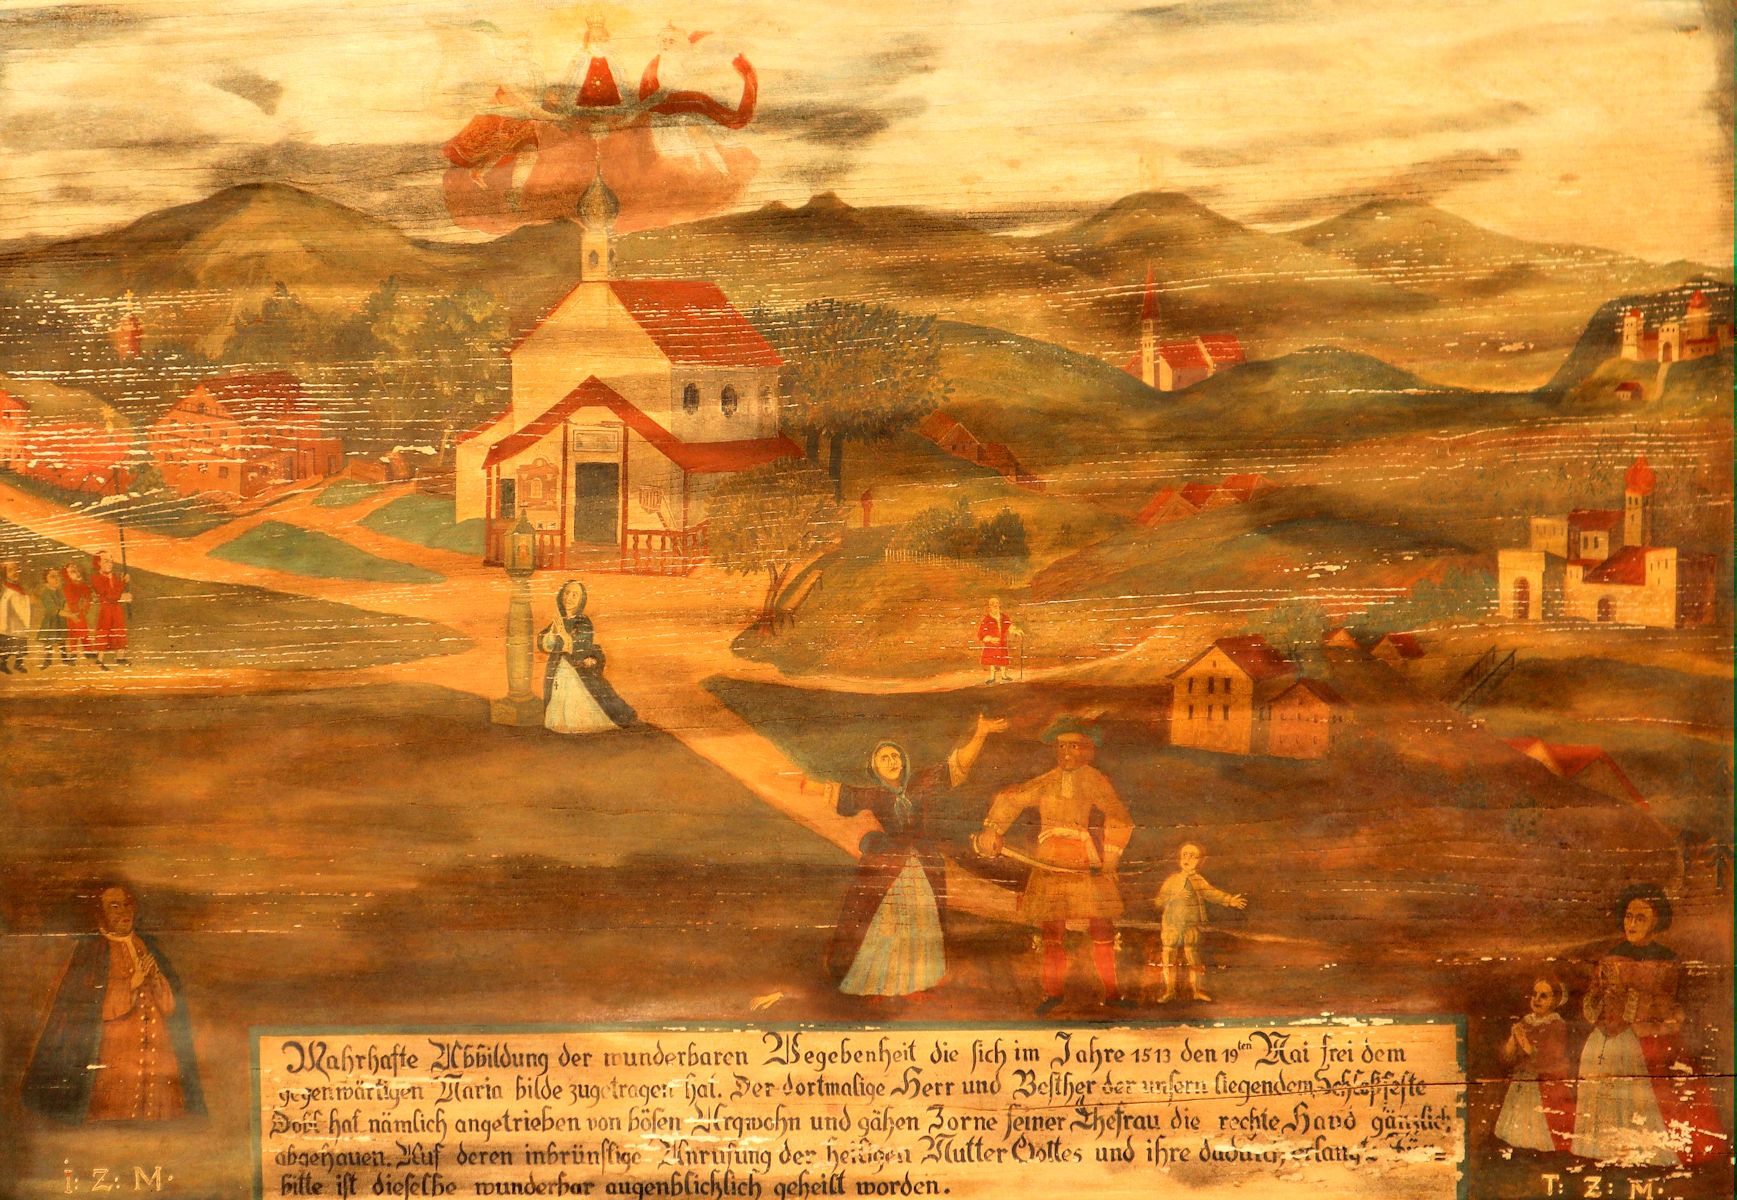 Mahrhafte Abbildung der wunderbaren Wegebenheit die sich im Jahre 1513 den 19ten Mai frei dem
gegenwärtigen Maria bilde zugetragen hat. Der dortmalige Herr und Besther der unsern liegendem
Dorf hat nämlich angetrieben von bösen Argwohn und gähen Zorne seiner Ehefrau die rechte Hand gänzlich
abgehauen. Auf deren inbrünstige Anrufung der heiligen Mutter Gottes und ihre dadurch erlangte
bitte ist dieselbe wunderbar augenblicklich geheilt worden.
i: Z: M.
T: Z: M.